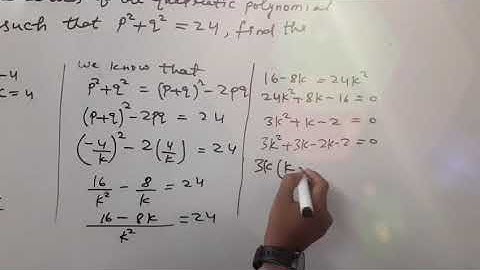 of the quadratic polynomial
such that p²+q² = 24, find the
-4
c = 4
we know that
p²+q² = (p+q)²-2pq
(p+q)²-2pq = 24
(-4/k)² - 2(4/k) = 24
16/k² - 8/k = 24
16-8k/k² = 24
16-8k = 24k²
24k²+8k-16 = 0
3k²+k-2 = 0
3k²+3k-2k-2 = 0
3k(k